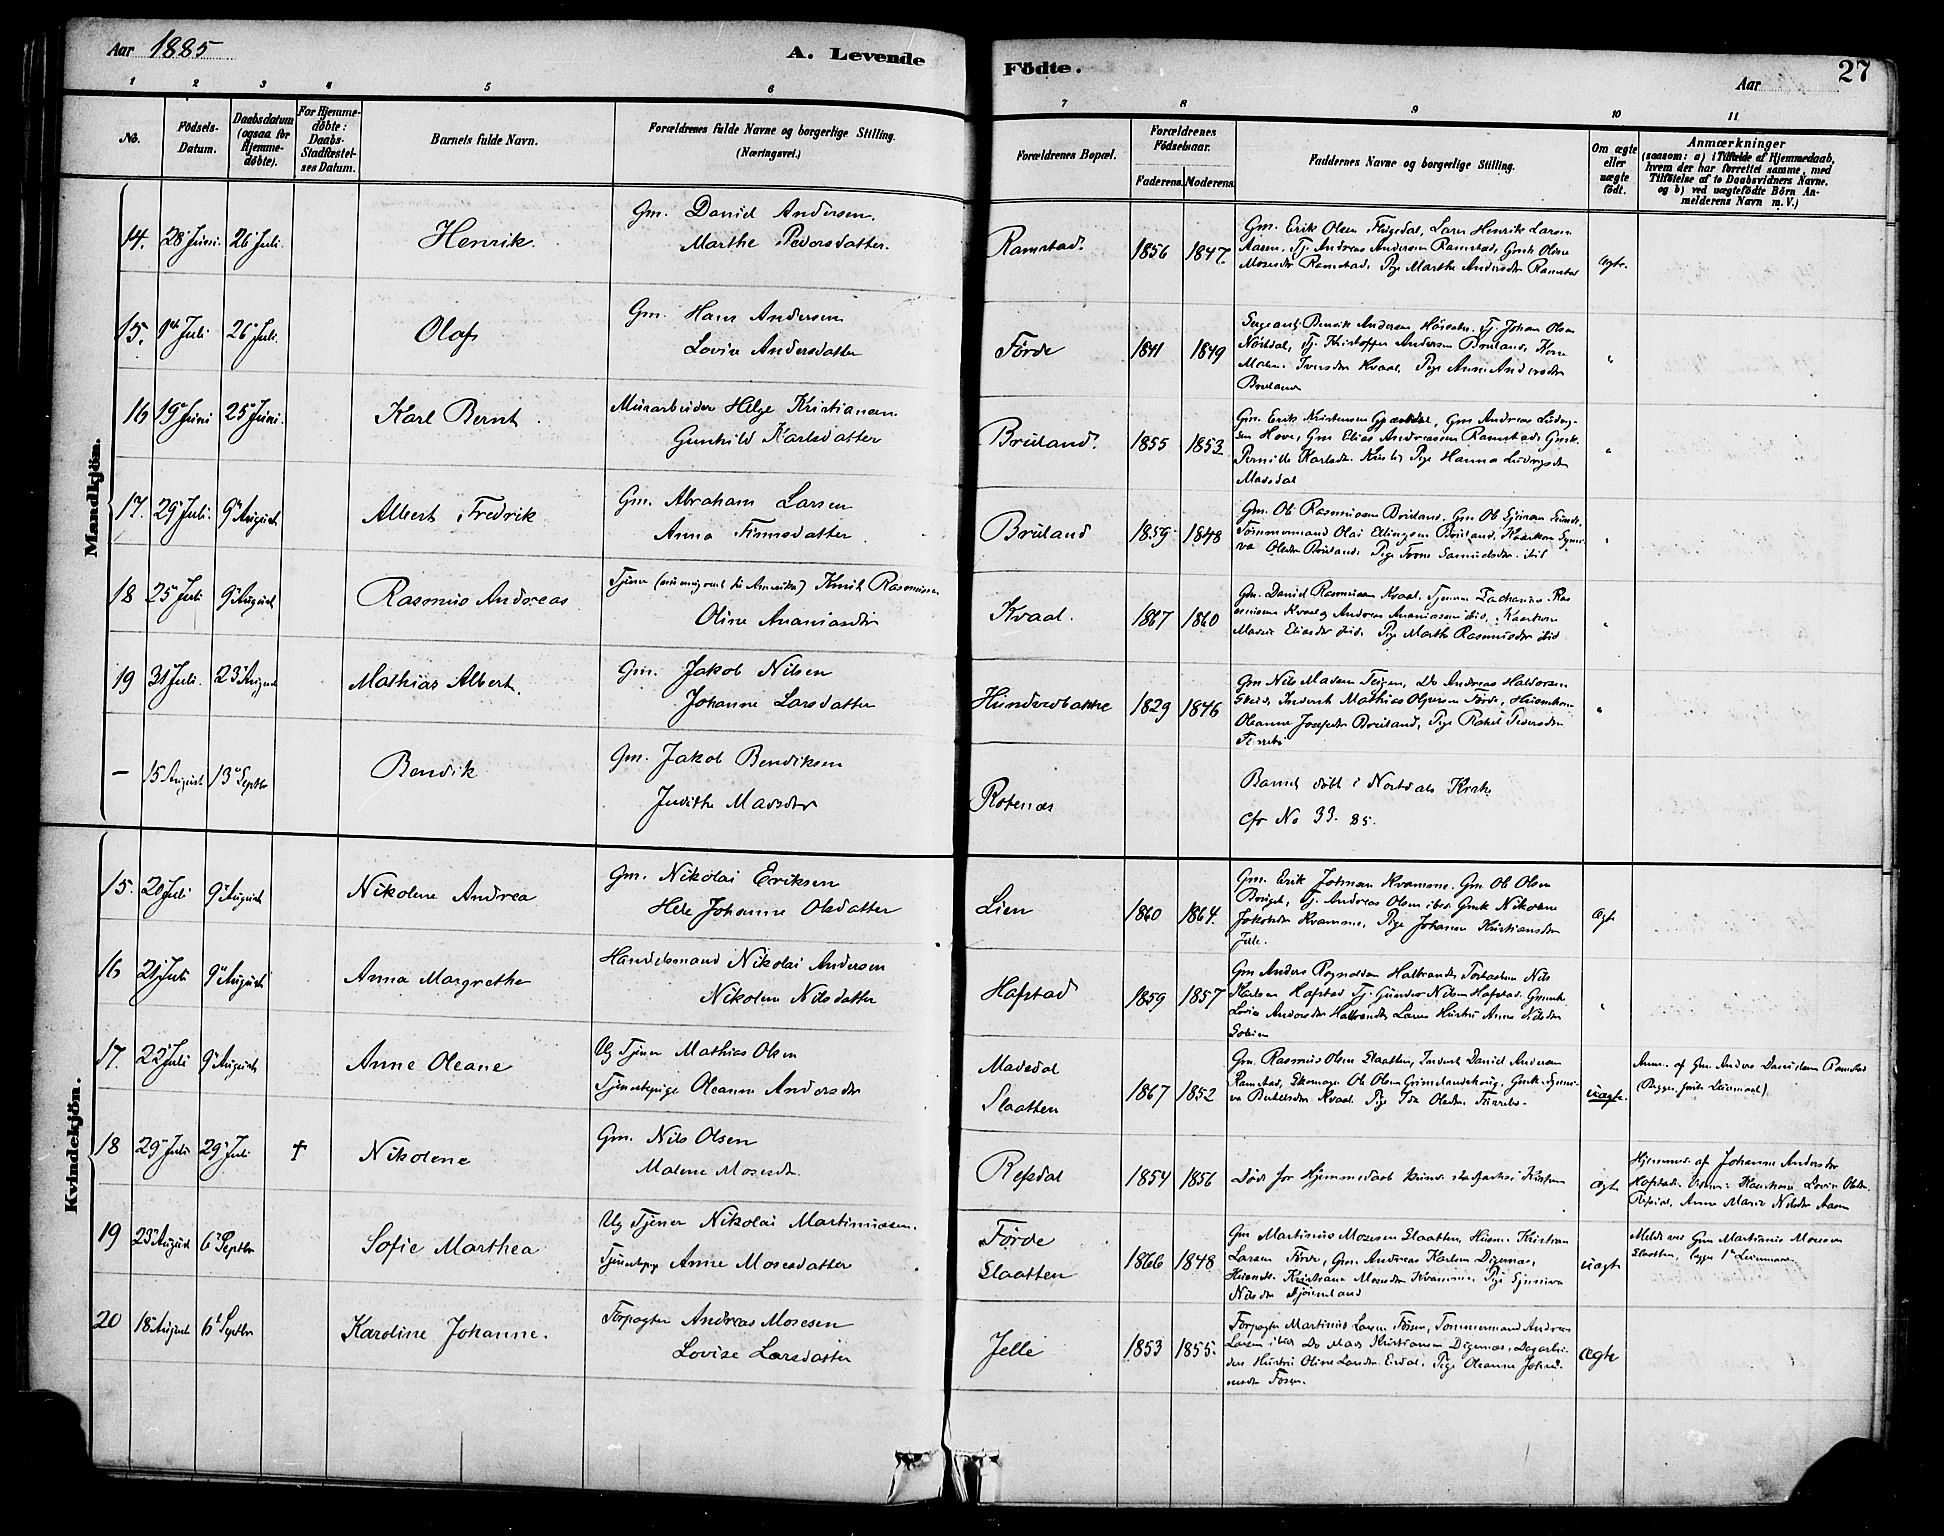 Aar 1885
A. Levende
Födte.
Aar
27
1 2 3 4 5 6 7 8 9 10 11
No.
Födsels-Datum.
Daabsdatum (ogsaa for Hjemmedöbte).
For Hjemmedöbte: Daabs-Stadfæstelses Datum.
Barnets fulde Navn.
Forældrenes fulde Navne og borgerlige Stilling.
(Næringsvei.)
Forældrenes Bopæl.
Forældrenes Födselsaar.
Faderens. Moderens.
Faddernes Navne og borgerlige Stilling.
Om ægte eller uægte födt.
Anmærkninger
(saasom: a) i Tilfælde af Hjemmedaab,
hvem der har forrettet samme, med
Tilföielse af to Daabsvidners Navne.
og b) ved uægtefödte Börn Anmelderens Navn m. V.)
Mandkjön.
14. 28 Juni. 26 Juli. Henrik. Gm. Daniel Andersen.
Marthe Pedersdatter.
Ramstad. 1856 1847. ægte.
Gm. Erik Olsen Lars Henrik Larsen
Aasen, Tj. Andreas Andersen Ramstad, Gmk Oline
Mosesdtr Ramstad, Pige Marthe Andersdtr Ramstad
15. 1 Juli 26 Juli. Olaf Gm. Hans Andersen
Lovise Andersdatter
Förde 1841 1849 "
Sergeant Bensik Andersen Tj. Johan Olsen
Tj. Kristoffer Andersen Bruland, Kone
Malene Iversdtr Kvaal, Pige Anne Andersdtr
Bruland
16 19 Juni 25 Juni. Karl Bernt Murarbeider Helge Kristiansen
Gunhild Karlsdatter
Bruland. 1855 1853 "
Gm. Erik Kristensen Gm Andreas Ludvigsen
Hove, Gm Elias Andreassen Ramstad, Gmk.
Pernille Karlsdtr. Pige Hanna Ludvigsdtr
Madsdal
17. 29 Juli. 9 August Albert Fredrik Gm. Abraham Larsen
Anna Finnsdatter
Bruland 1859 1848 "
Gm. Ole Rasmussen Bruland, Gm Ole
Tömmermand Olai Ellingsen Bruland, Kaarkone
Olsdtr Bruland, Pige Samuelsdtr. ibid
18 25 Juli 9 August Rasmus Andreas Tjener (emigreret til Amerika) Knut Rasmussen
Oline Ananiasdtr
Kvaal. 1867 1860 "
Gm. Daniel Rasmussen Kvaal, Tjener Zacharias Rasmussen
Kvaal og Andreas Ananiassen ibid, Kaarkone
Eliasdtr ibid, Pige Marthe Rasmusdtr ibid
19 31 Juli. 23 August Mathias Albert. Gm. Jakob Nilsen
Johanne Larsdatter
Hundvebakke 1829 1846 "
Gm Nils Madsen Teigen, Do Andreas Haldorsen
Inderst Mathias Förde, Huuskone
Oleanne Josepsdtr Bruland, Pige Rakel Pedersdtr
– 15 August 13 Septbr Bendik Gm. Jakob Bendiksen
Judithe Madsdtr
Rotenæs
Barnet döbt i Kirke
cfr No 33. 85.
Kvindekjön.
15. 20 Juli 9 August Nikoline Andrea Gm. Nikolai Eriksen
Johanne Olsdatter
Lien 1860 1864. ægte
Gm. Erik Kvamme, Gm. Ole Olsen
Tj. Andreas Olsen ibid, Gmk Nikoline
Jakobsdtr Kvamme, Pige Johanne Kristiansdtr
16 21 Juli 9 August Anna Margrethe Handelsmand Nikolai Andersen
Nikoline Nilsdatter
Hafstad 1859 1857 "
Gm Anders Halbrendt, Nils
Karlsen Hafstad, Tj. Gunder Nilsen Hafstad, Gmk
Lovise Andersdtr Halbrendt, Anne Nilsdtr
17. 22 Juli 9 August Anne Oleane Ug Tjener Mathias Olsen
Tjenestepige Oleanne Andersdtr
Madsdal
Slaatten 1867 1852 uægte.
Gm. Rasmus Olsen Slaatten, Inderst Daniel Andersen
Ramstad, Skomager Ole Olsen Gmk
Kvaal, Pige Ida Olsdtr
Anm. af Gm Anders Danielsen Ramstad
(Begges förste Leiermaal).
18 29 Juli 29 Juli † Nikolene Gm. Nils Olsen
Malene Mosesdtr.
Refsdal 1854 1856 ægte
Döde för Hjemmedaab kunde stadfæstes i Kirken
Hjemmed. af Johanne Andersdtr
Hafstad. Vidner: Kaarkone Lovise Olsdtr
Refsdal, Anne Marie Nilsdtr Aasen
19 23 August 6 Septbr Sofie Marthea Ug Tjener Nikolai Martinussen.
Tjenestepige Anne Mosesdatter
Förde
Slaatten 1866 1848 uægte
Gm Martinus Mosesen Slaatten, Husm. Kristian
Larsen Förde, Gm. Andreas Karlsen Digernæs,
Kristiane Kvamme, Pige
Nilsdtr
Meldt ved Gm Martinus Mosesen
Slaatten, begges 1te Leiermaal
20 18 August 6 Septbr Karoline Johanne. Forpagter Andreas Mosesen
Lovise Larsdatter
Jelle 1853 1855. Ægte
Forpagter Martinus Larsen Fosen, Tömmermand Andreas
Larsen ibid, Do Mads Kristiansen Digernæs, Dagarbeiders
Hustru Oline Larsdtr Erdal, Pige Oleanne
Fosen.